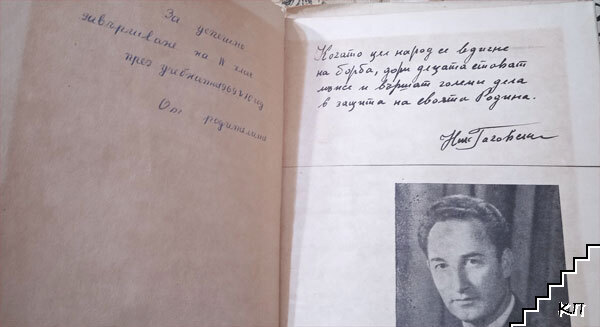 За успешно
завършване на IV клас
през учебната 1969 год
От родителите
Когато цял народ се вдигне
на борба, дори децата стават
мъже и вършат големи дела
в защита на своята Родина.
КЛ